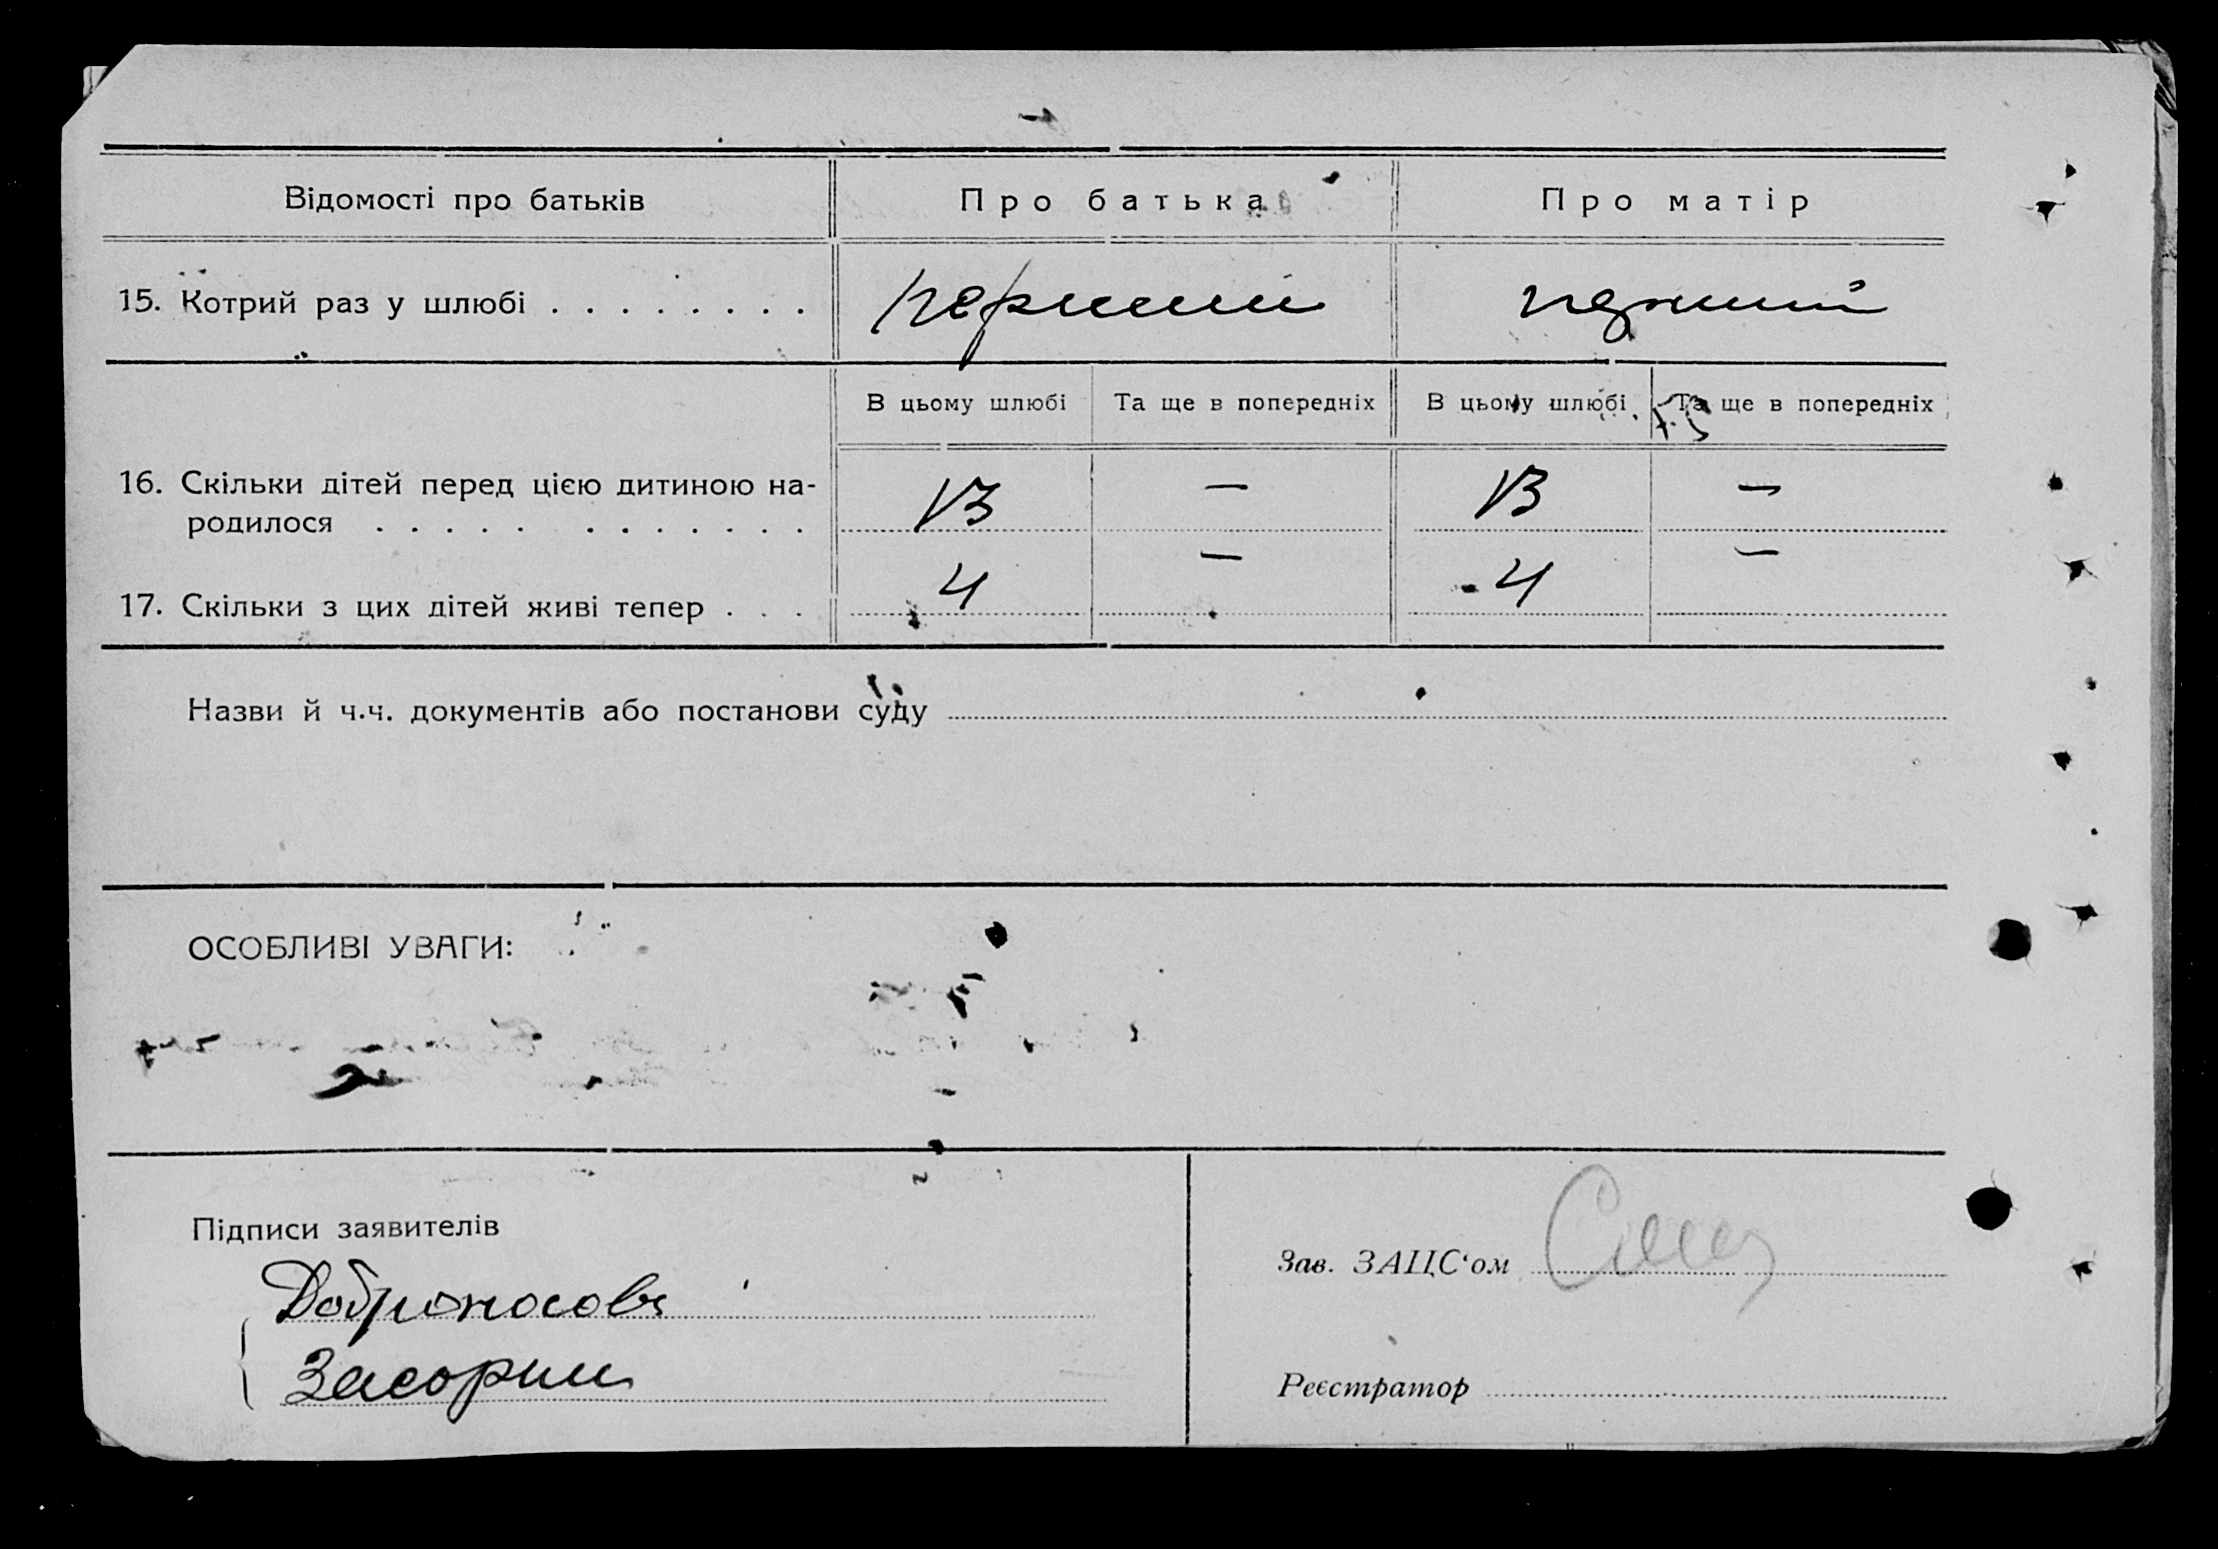 Відомості про батьків Про батька Про матір
15. Котрий раз у шлюбі . . . . . . . . перший перший
В цьому шлюбі Та ще в попередніх В цьому шлюбі Та ще в попередніх
16. Скільки дітей перед цією дитиною на-
родилося . . . . . . . . . . . . 13 — 13 —
17. Скільки з цих дітей живі тепер . . . 4 — 4 —
Назви й ч.ч. документів або постанови суду
ОСОБЛИВІ УВАГИ:
Підписи заявителів
Зав. ЗАЦС‘ом
Доброносова
Реєстратор